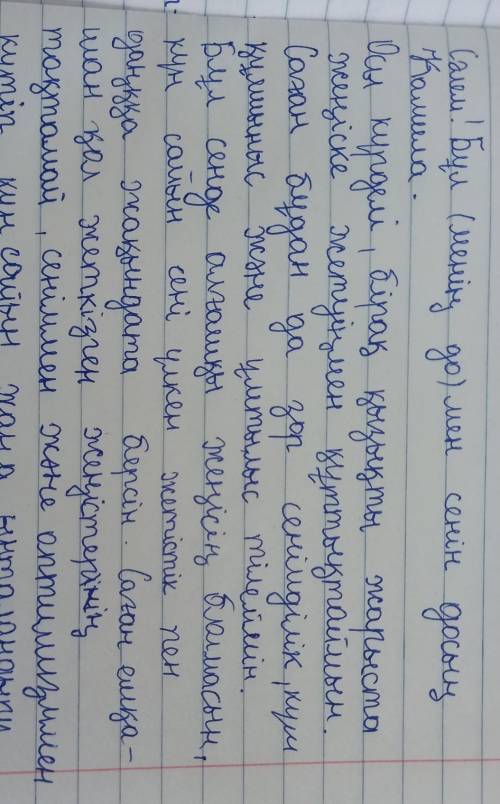 Сәлем! Бұл (менің до) мен сенін досың
Камила.
Осы күрделі, бірақ қызықты жарыста
жеңіске жетуіңмен құттықтаймын.
Саған бұдан да зор сенімділік, күш
құлшыныс және ұмтылыс тілеймін.
Бұл сенде алғашқы жеңісің болмасын,
күн сайын сені үлкен жетістік пен
даңққа жақындата берсін. Саған ешқа-
шан қол жеткізген жеңістеріңнің
тоқтамай, сеніммен және оптимизммен
күтіп күн сайын жаңа